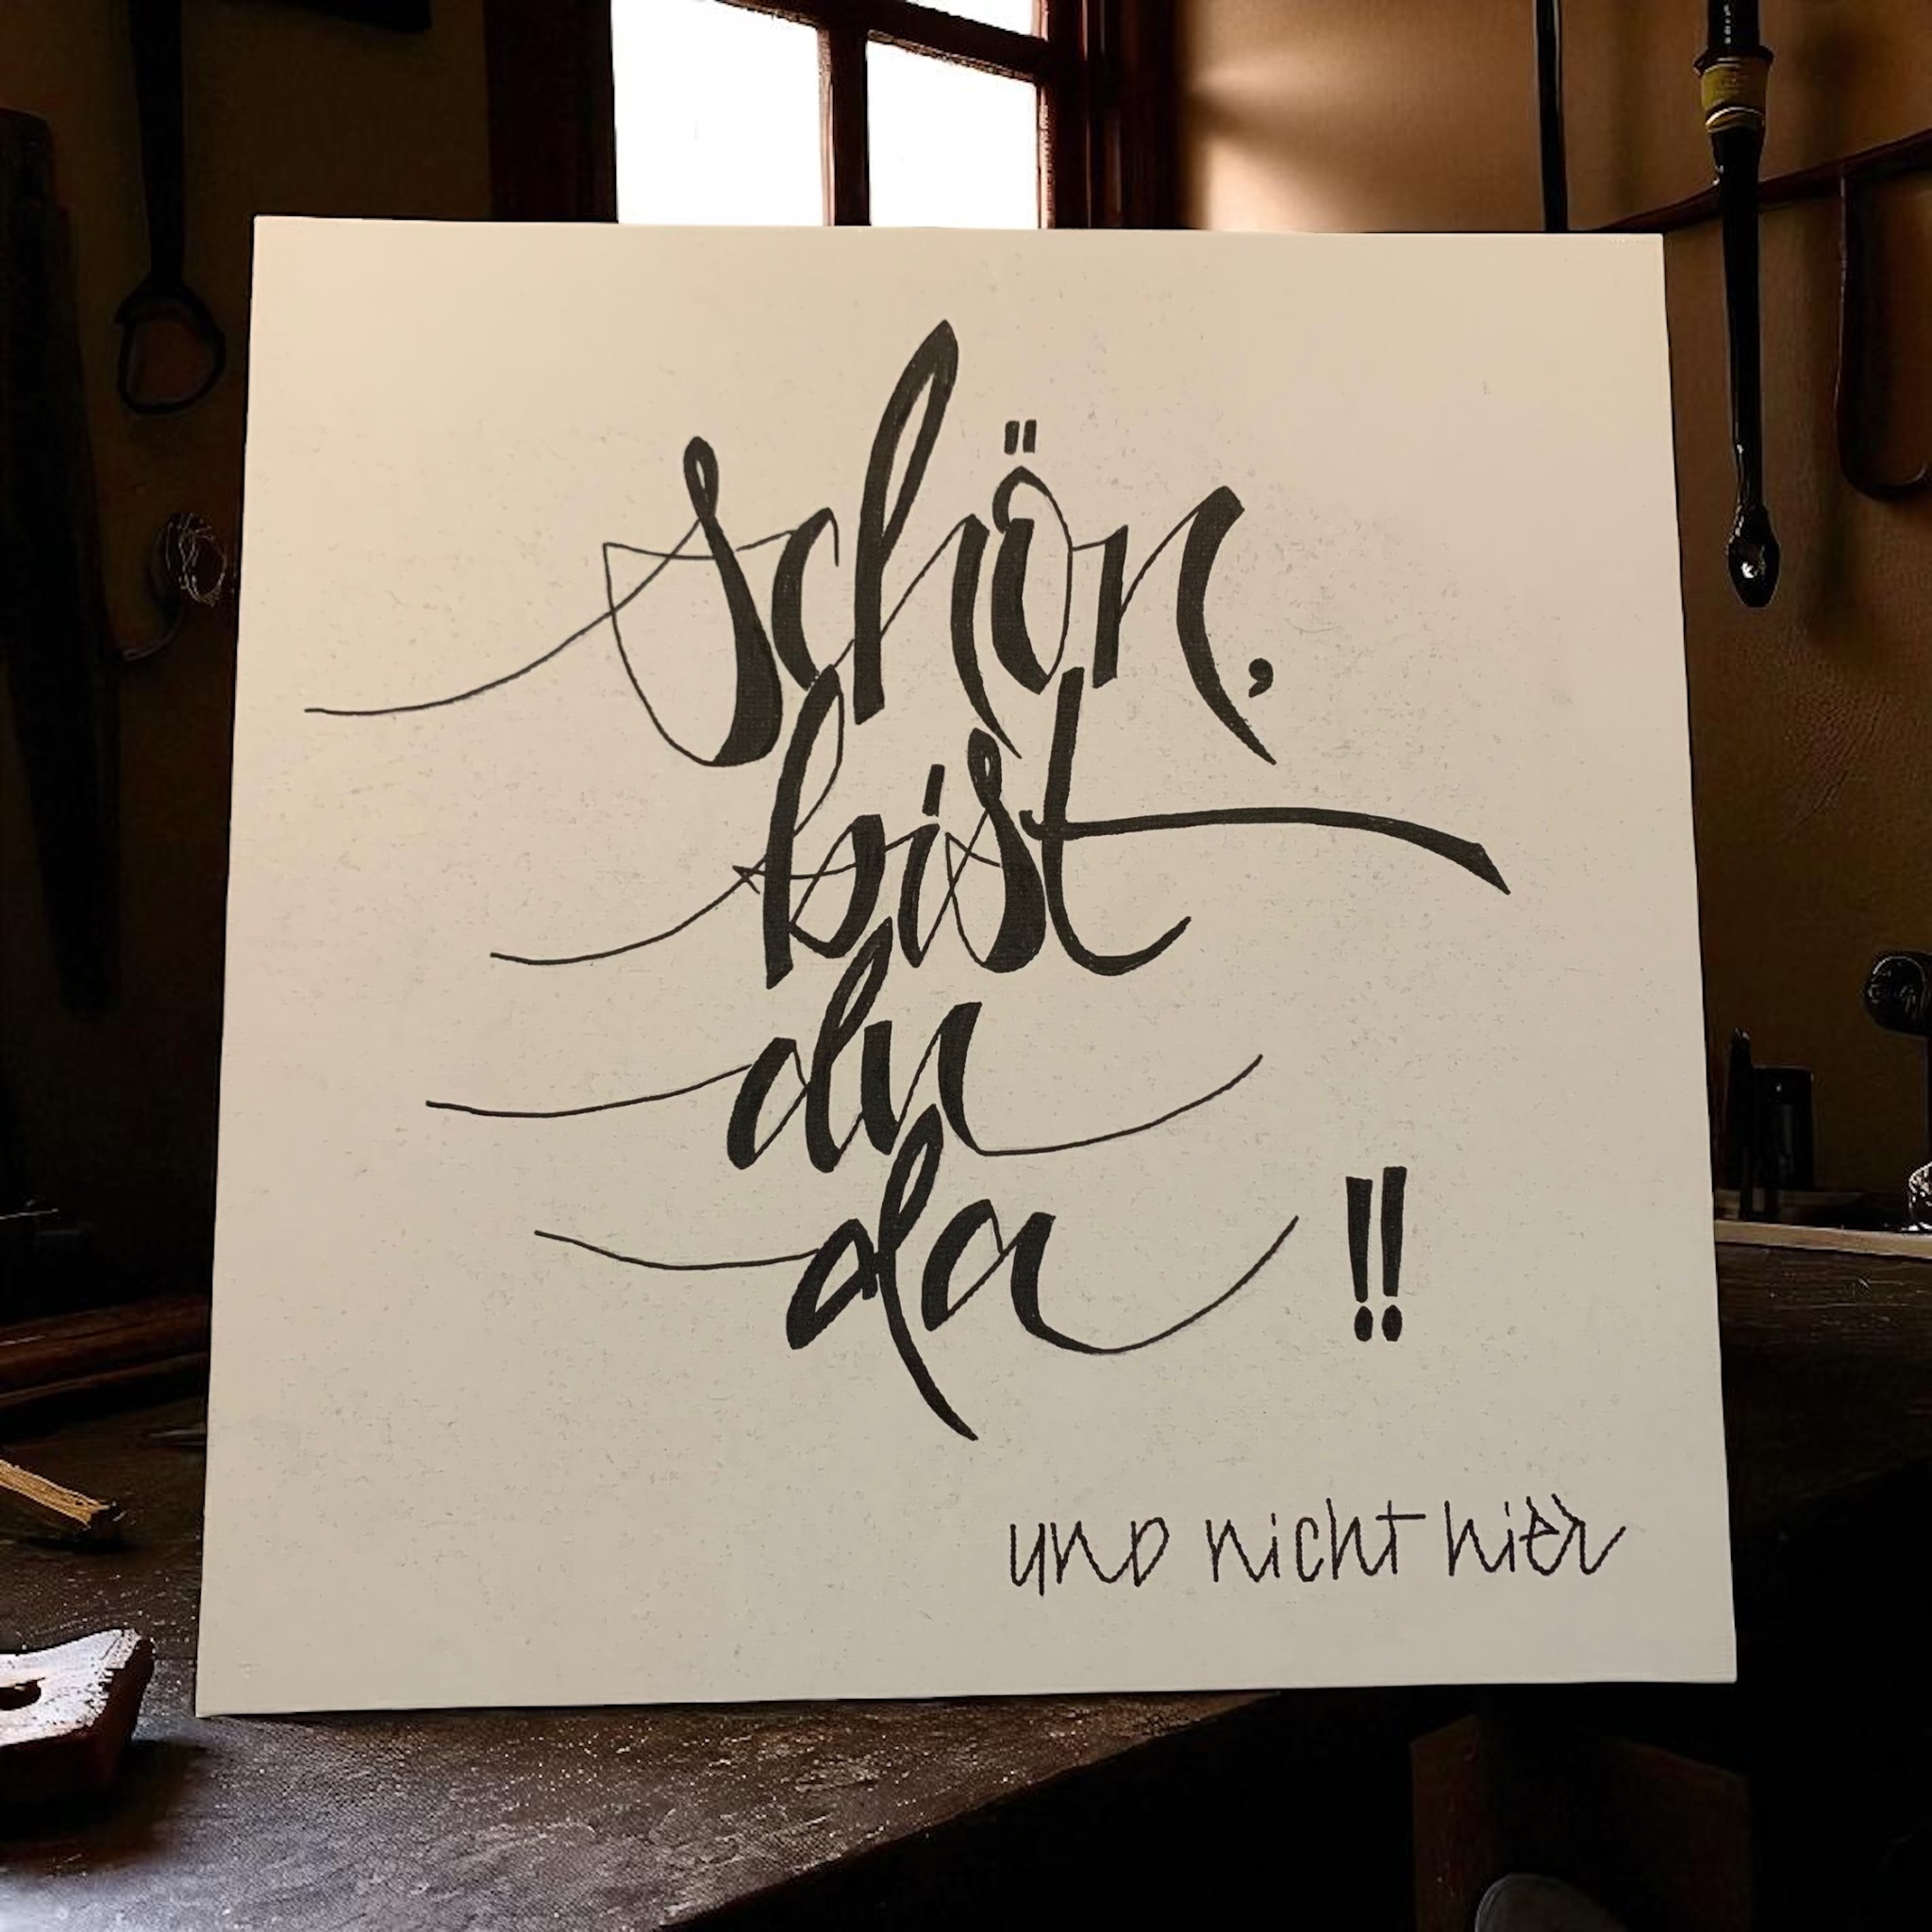 schön,
bist
du
da !!
und nicht hier